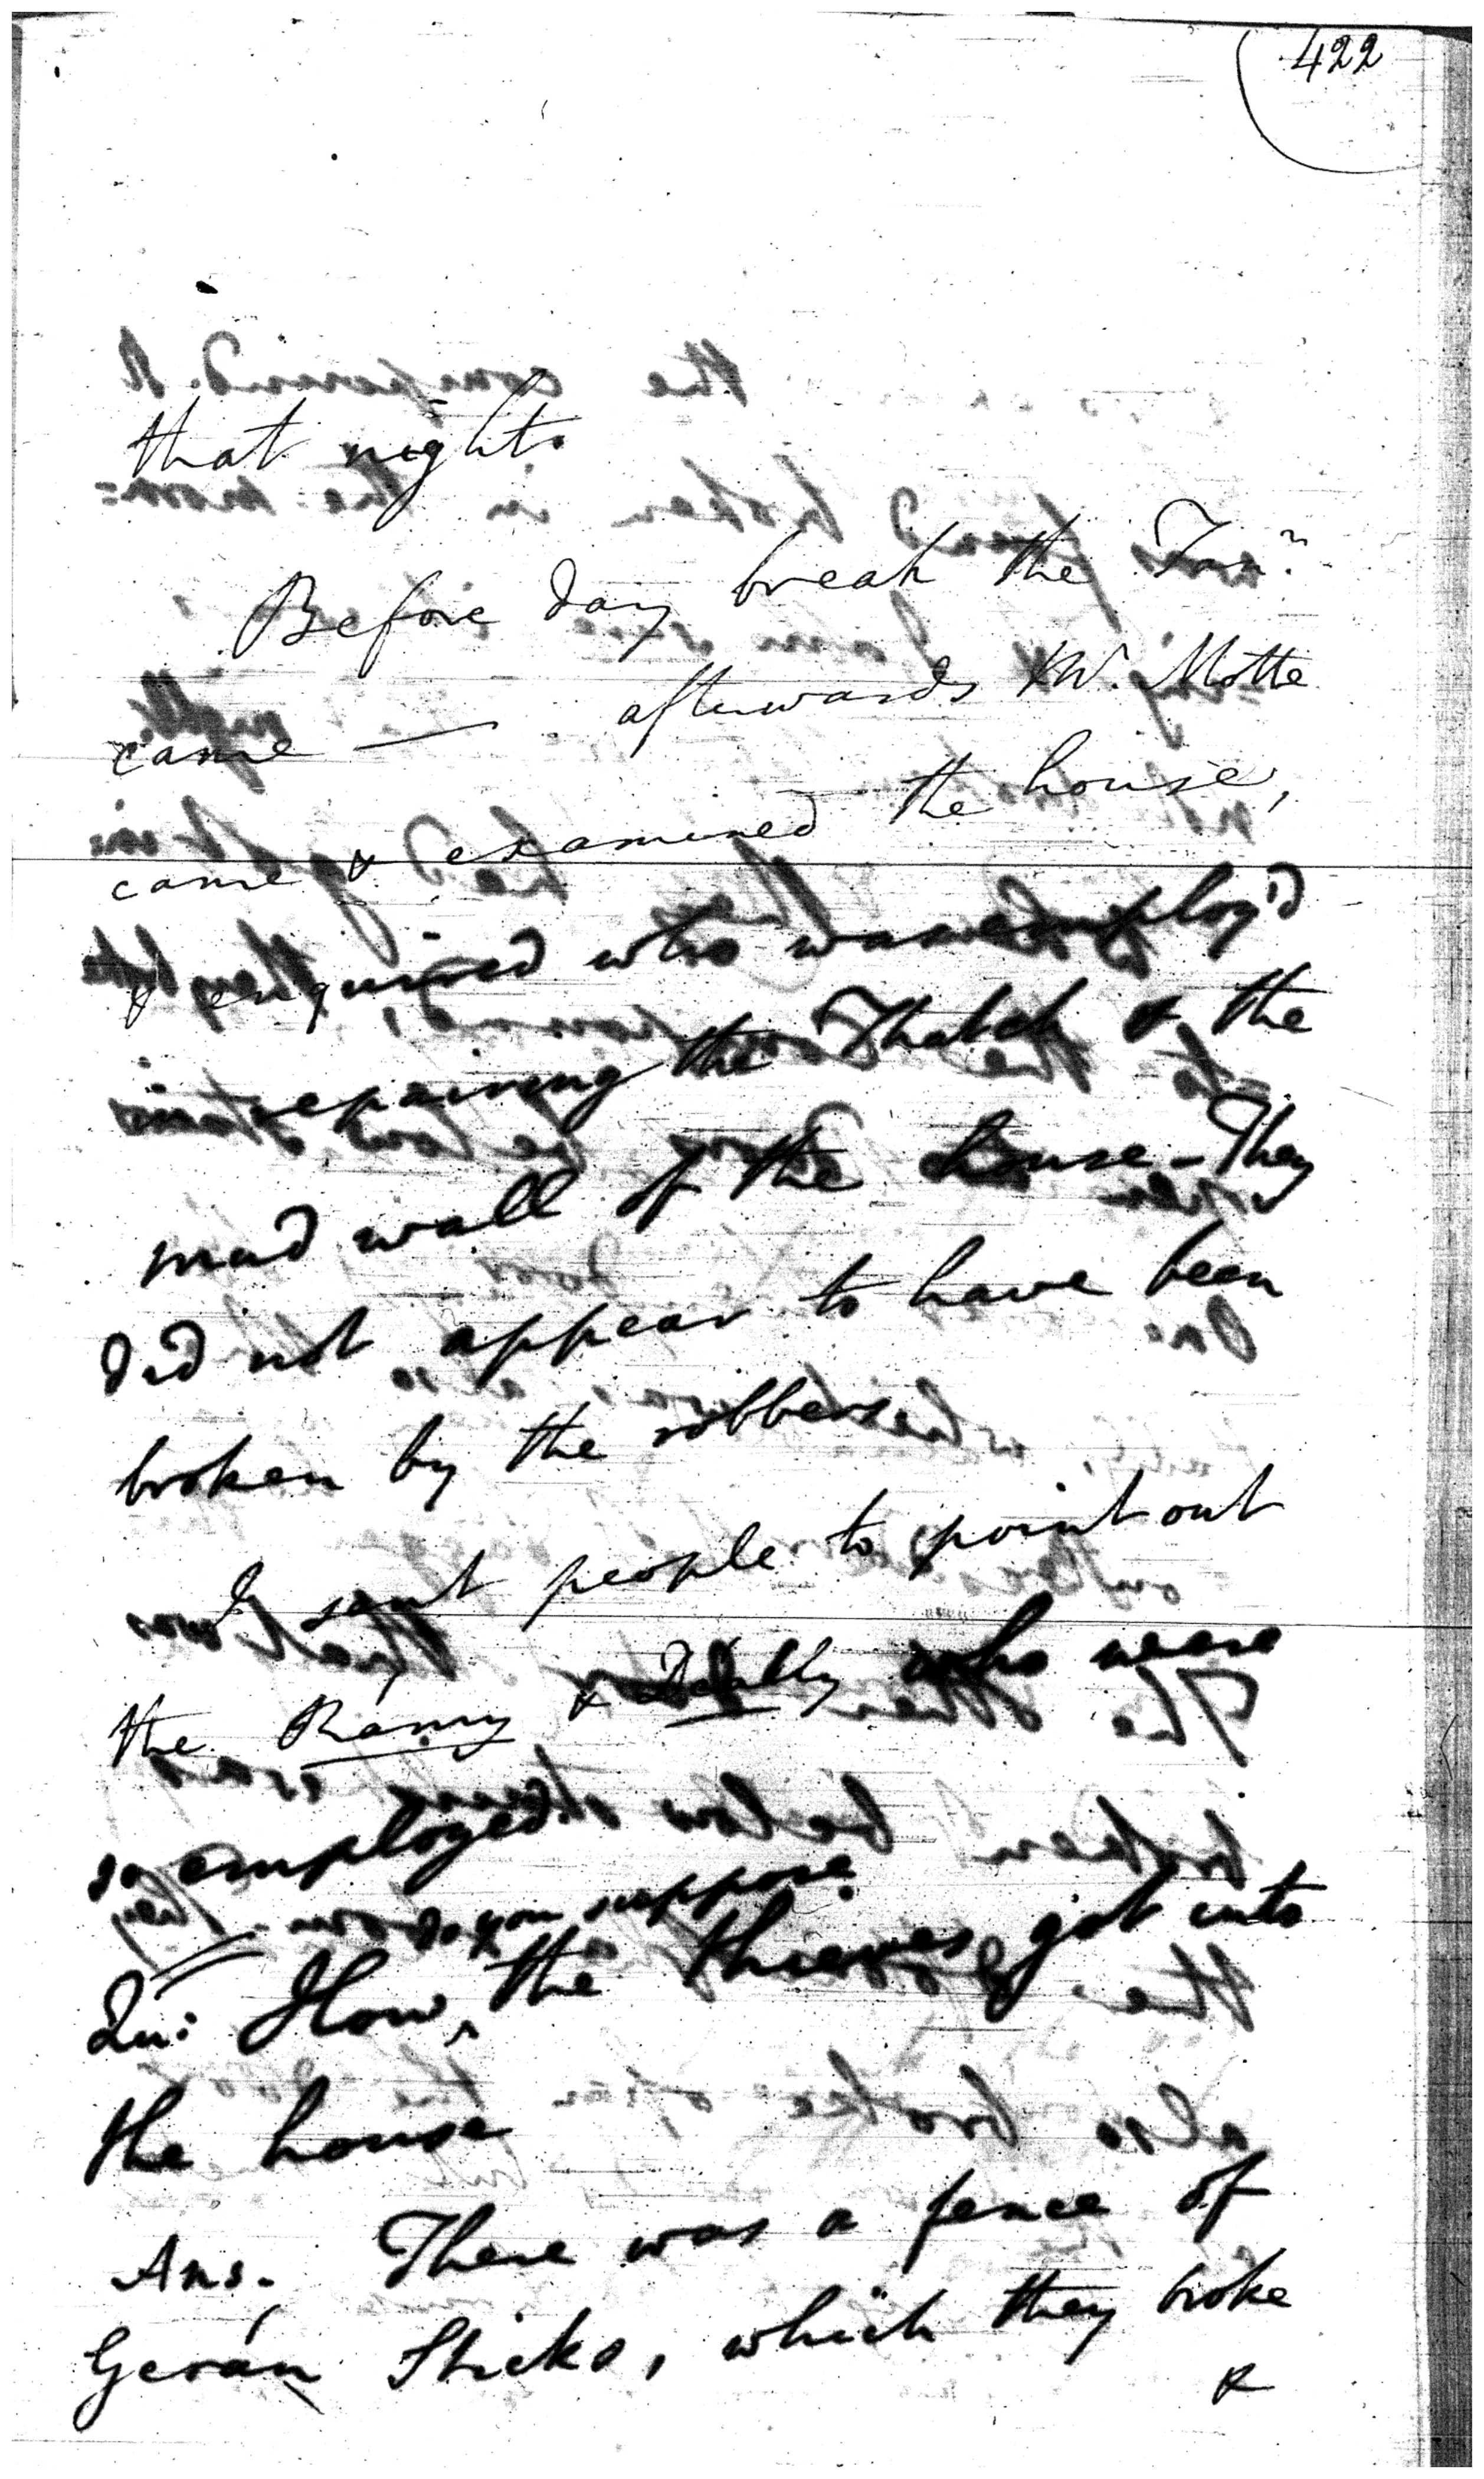 422
that night.
Before day break the Tan.ⁿ
came — afterwards Mr. Motte
came & examined the house,
& enquired who was employ'd
in repairing the Thatch & the
mud wall of the house - They
did not appear to have been
broken by the robbers.
I sent people to point out
the Ramy & who were
so employed.
do you suppose
Qu: How, the thieves got into
the house
Ans. There was a fence of
Gerán Sticks, which they broke
&